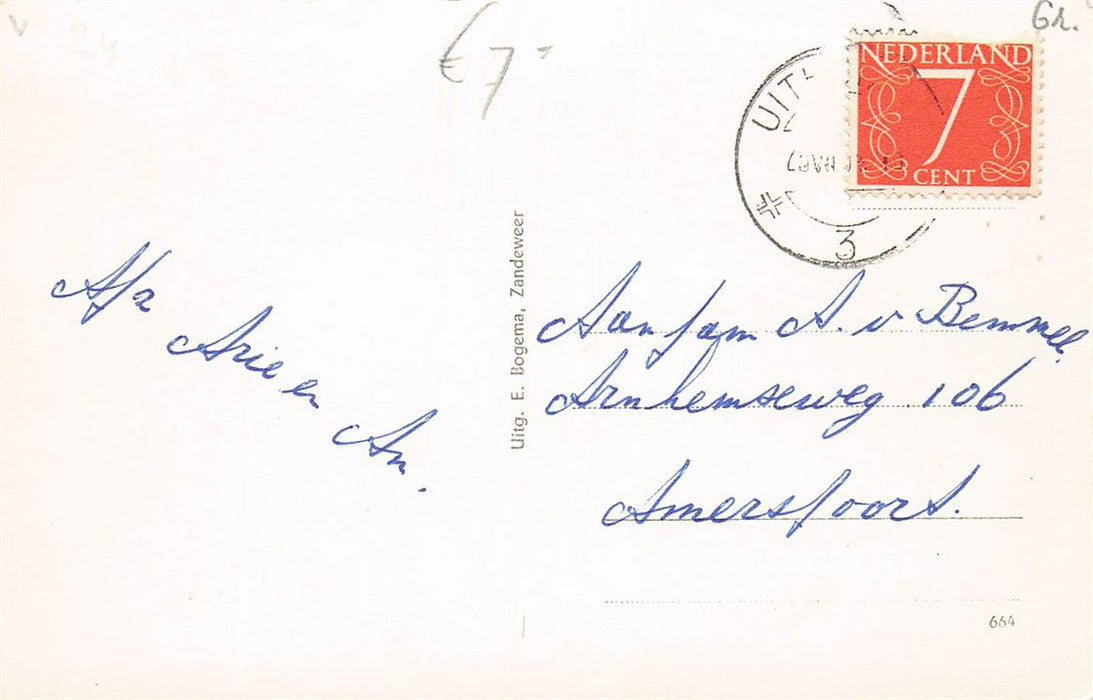 €7,-
Gr.
NEDERLAND
7
CENT
UIT
3
Afz
Arie en
An.
Uitg. E. Bogema, Zandeweer
Aan fam A. v Bemmel.
Arnhemseweg 106
Amersfoort.
664